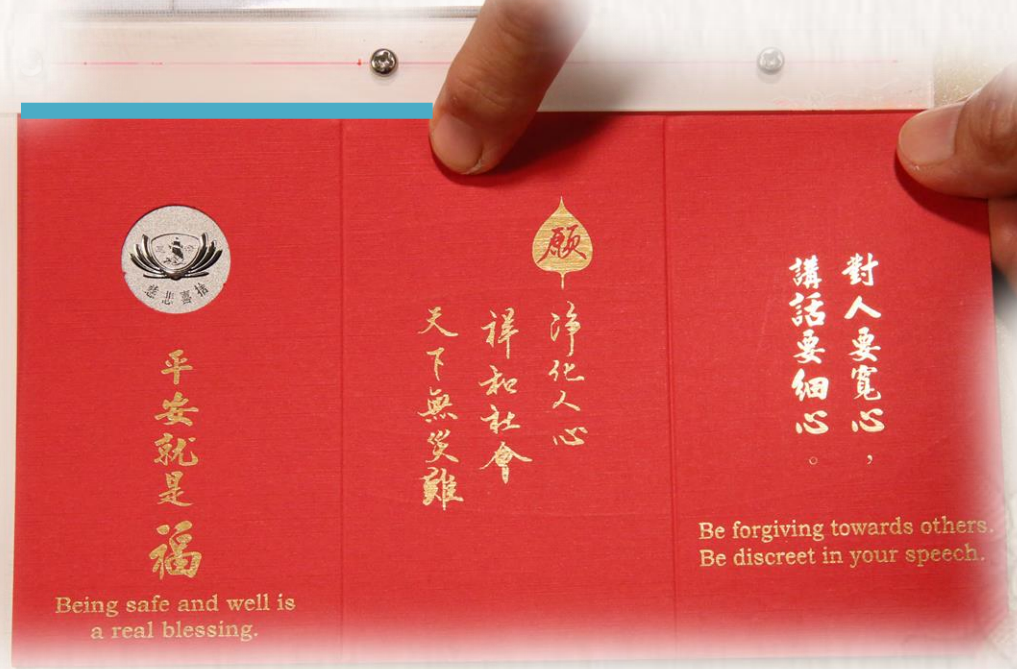 慈悲喜捨
平安就是福
Being safe and well is
a real blessing.
願
淨化人心
祥和社會
天下無災難
對人要寬心，
講話要細心。
Be forgiving towards others.
Be discreet in your speech.